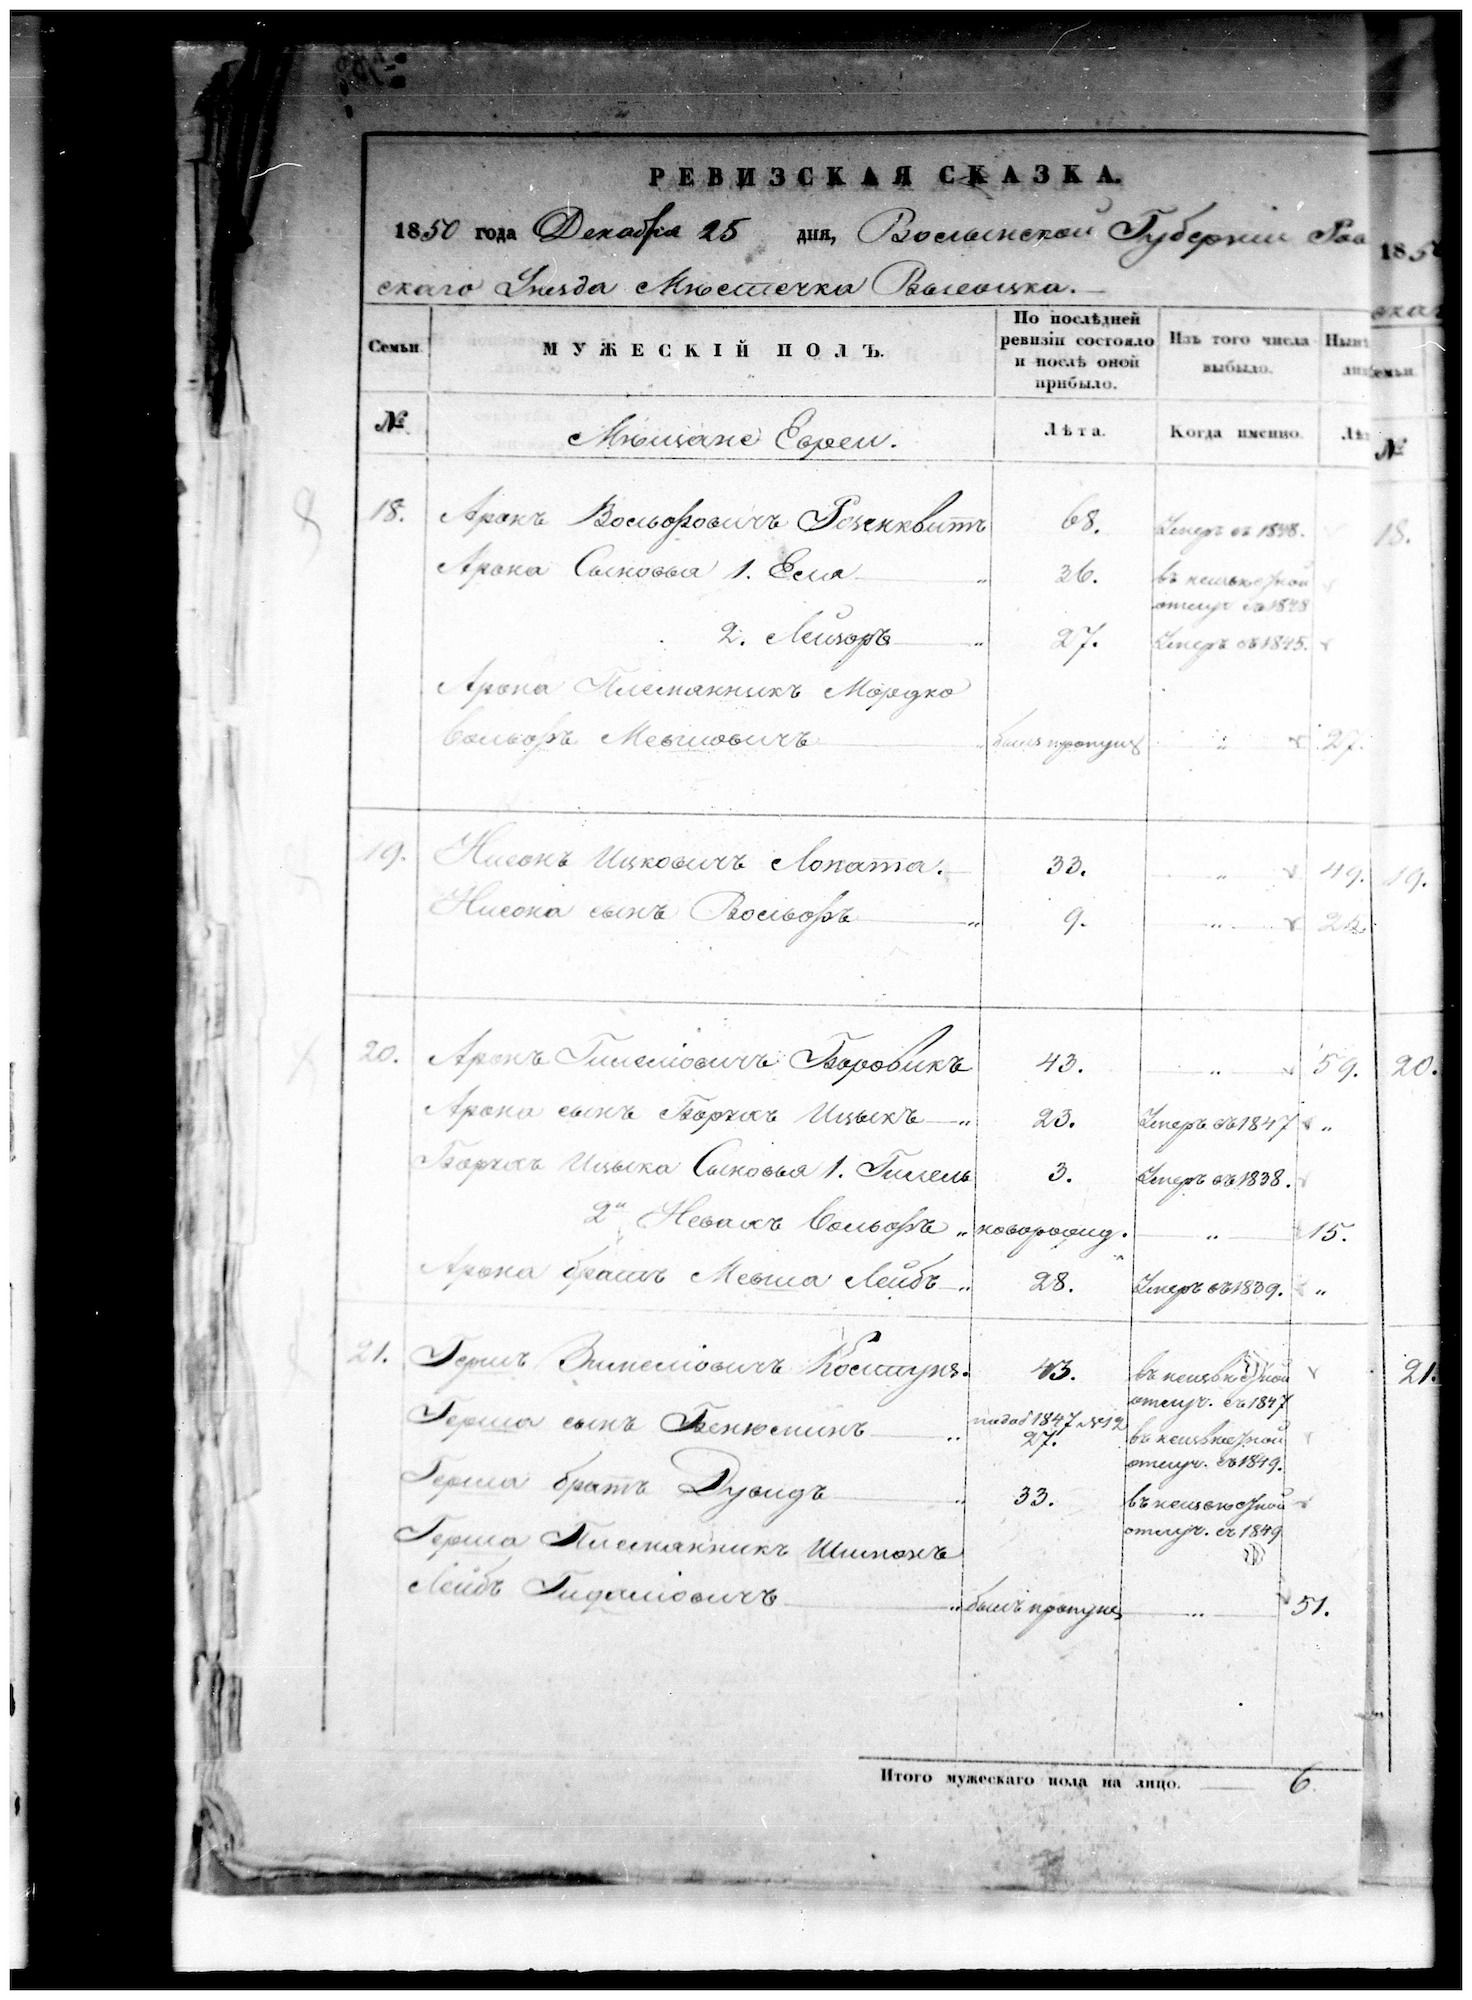 РЕВИЗСКАЯ СКАЗКА.
1850 года Декабря 25 дня, Волынской Губернии Ров
скаго Уезда Мѣстечка Высоцка.
Семьи
МУЖЕСКІЙ ПОЛЪ.
По послѣдней
ревизіи состояло
и послѣ оной
прибыло.
Изъ того числа
выбыло.
№
Мѣщане Евреи.
Лѣта.
Когда именно.
18. Аронъ Вольфовичъ Розенквитъ 68. Умеръ въ 1848.
Арона Сыновья 1. Еля 36. въ неизвѣстной
отлуч съ 1848
2. Лейзоръ " 27. Умеръ въ 1845.
Арона Племянникъ Мордко
Вольфъ Мевшовичъ " былъ пропущ " 27.
19. Нисонъ Ицковичъ Лопата. 33. " 49.
Нисона сынъ Вольфъ " 9. "
20. Аронъ Гилелиовичъ Боровикъ 43. " 59.
Арона сынъ Борухъ Ицыкъ " 23. Умеръ въ 1847 "
Борухъ Ицыка Сыновья 1. Гилель 3. Умеръ въ 1838.
2й Новахъ Вольфъ " новорожд. " 15.
Арона братъ Мевша Лейбъ " 28. Умеръ въ 1839. "
21. Гершъ 43. въ неизвѣстной
отлуч. съ 1847
Герша сынъ Бенюминъ " 27. въ неизвѣстной
отлуч. съ 1849.
Герша братъ Дувидъ " 33. въ неизвѣстной
отлуч. съ 1849
Герша Племянникъ Шимонъ
Лейбъ Гидаліовичъ " былъ пропущ " 51.
Итого мужескаго пола на лицо. 6.
18.
19.
20.
21.